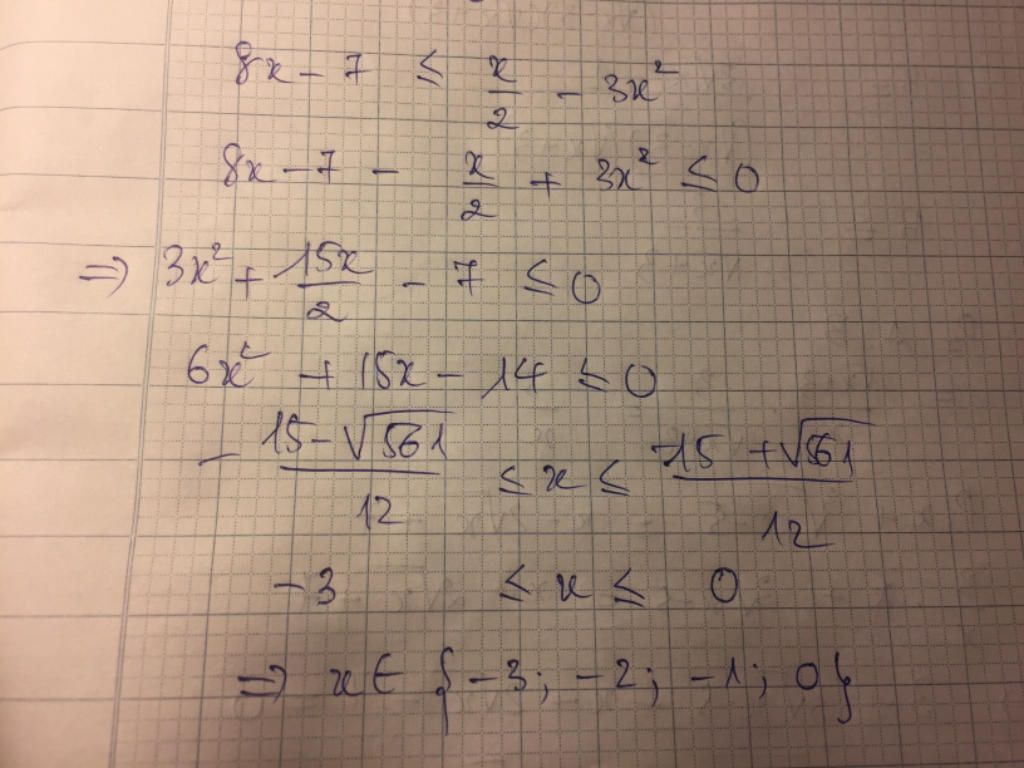 8x - 7 ≤ x/2 - 3x²
8x - 7 - x/2 + 3x² ≤ 0
⇒ 3x² + 15x/2 - 7 ≤ 0
6x² + 15x - 14 ≤ 0
- (15 - √561)/12 ≤ x ≤ (-15 + √561)/12
-3 ≤ x ≤ 0
⇒ x ∈ {-3; -2; -1; 0}